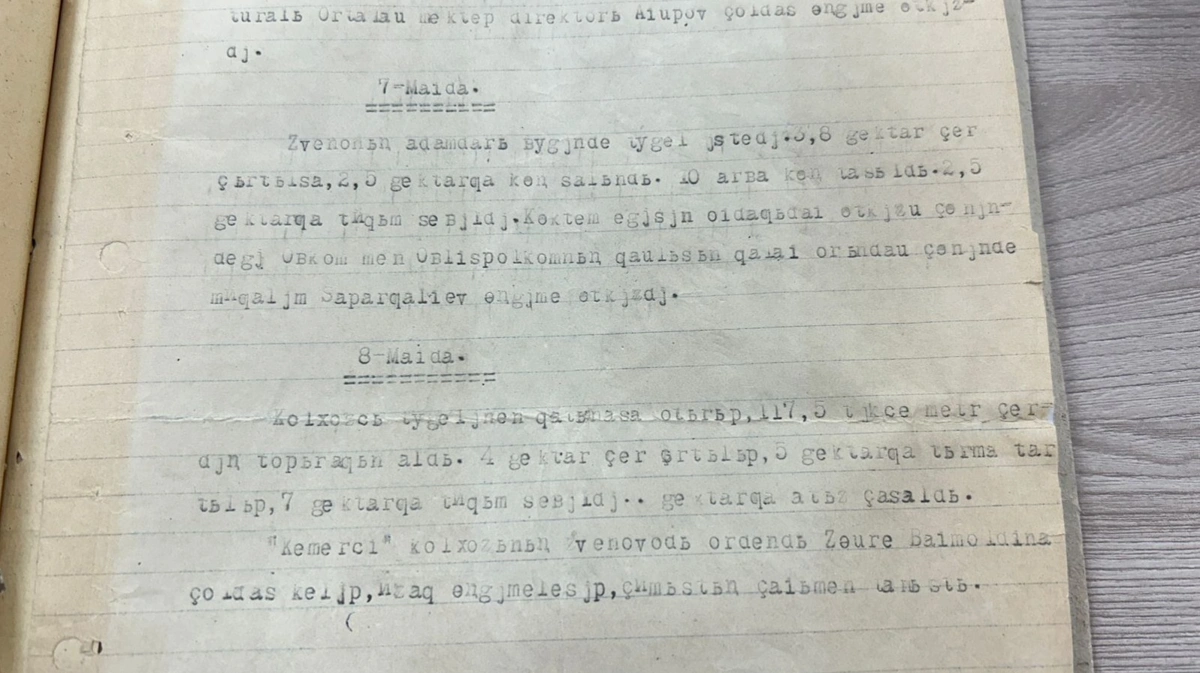 turalь Ortalau mektep direktorь Aiupov çoldas əngjme өtkjz-
dj.
7-Maida.
Zvenonьꞑ adamdarь вygjnde tygel jstedj.3,8 gektar çer
çьrtьlsa,2,5 gektarqa kөꞑ salьndь. 10 arвa kөꞑ tasьldь.2,5
gektarqa tuqьm seвjldj.Kөktem egjsjn oidaqьdai өtkjzu çөnjn-
degj Oвkom men Oвlispolkomnьꞑ qaulьsьn qalai orьndau çөnjnde
muqaljm Saparqaliev əngjme өtkjzdj.
8-Maida.
Kolxozcь tygeljmen qatьnasa otьrьp,117,5 tjkçe metr çer-
djꞑ topьraqьn aldь. 4 gektar çer çrtьlьp,5 gektarqa tьrma tar
tьlьp,7 gektarqa tuqьm seвjldj.. gektarqa atьz çasaldь.
"Kemerci" kolxozьnьꞑ zvenovodь ordendь Zəure Baimoldina
çoldas keljp,uzaq əngjmelesjp,çumьstьꞑ çaiьmen tanьstь.